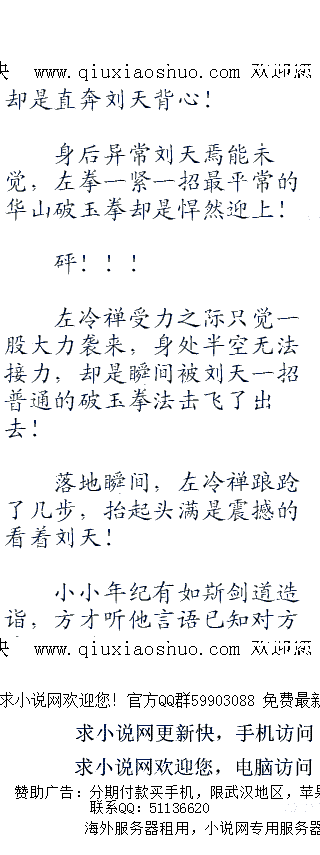 www.qiuxiaoshuo.com 欢迎您
却是直奔刘天背心！
身后异常刘天焉能未
觉，左拳一紧一招最平常的
华山破玉拳却是悍然迎上！
砰！！！
左冷禅受力之际只觉一
股大力袭来，身处半空无法
接力，却是瞬间被刘天一招
普通的破玉拳法击飞了出
去！
落地瞬间，左冷禅踉跄
了几步，抬起头满是震撼的
看着刘天！
小小年纪有如斯剑道造
诣，方才听他言语已知对方
www.qiuxiaoshuo.com 欢迎您
求小说网欢迎您！官方QQ群59903088 免费最新
求小说网更新快，手机访问
求小说网欢迎您，电脑访问
赞助广告：分期付款买手机，限武汉地区，苹果
联系QQ：51136620
海外服务器租用，小说网专用服务器